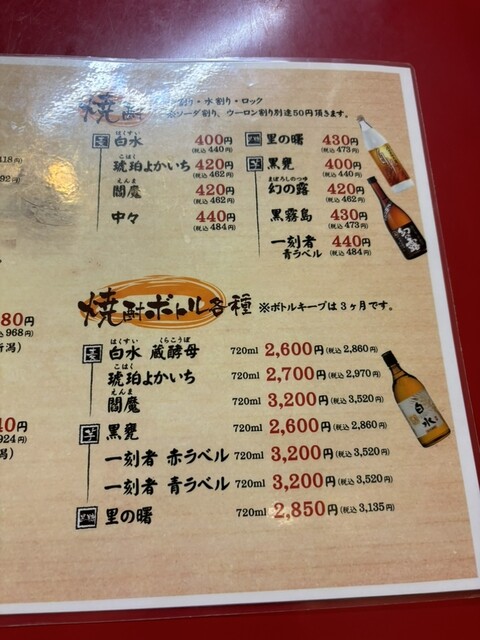 焼酎
割り・水割り・ロック
※ソーダ割り、ウーロン割り別途50円頂きます。
麦 はくすい
白水 400円 (税込 440円)
こはく
琥珀よかいち 420円 (税込 462円)
えんま
閻魔 420円 (税込 462円)
中々 440円 (税込 484円)
里の曙 430円 (税込 473円)
芋 黒甕 400円 (税込 440円)
まぼろしのつゆ
幻の露 420円 (税込 462円)
黒霧島 430円 (税込 473円)
一刻者
青ラベル 440円 (税込 484円)
焼酎ボトル各種 ※ボトルキープは3ヶ月です。
はくすい くらこうぼ
麦 白水 蔵酵母 720ml 2,600円 (税込 2,860円)
こはく
琥珀よかいち 720ml 2,700円 (税込 2,970円)
えんま
閻魔 720ml 3,200円 (税込 3,520円)
芋 黒甕 720ml 2,600円 (税込 2,860円)
一刻者 赤ラベル 720ml 3,200円 (税込 3,520円)
一刻者 青ラベル 720ml 3,200円 (税込 3,520円)
里の曙 720ml 2,850円 (税込 3,135円)
418円)
92円)
80円
968円)
新潟)
40円
924円)
潟)
幻露
白水